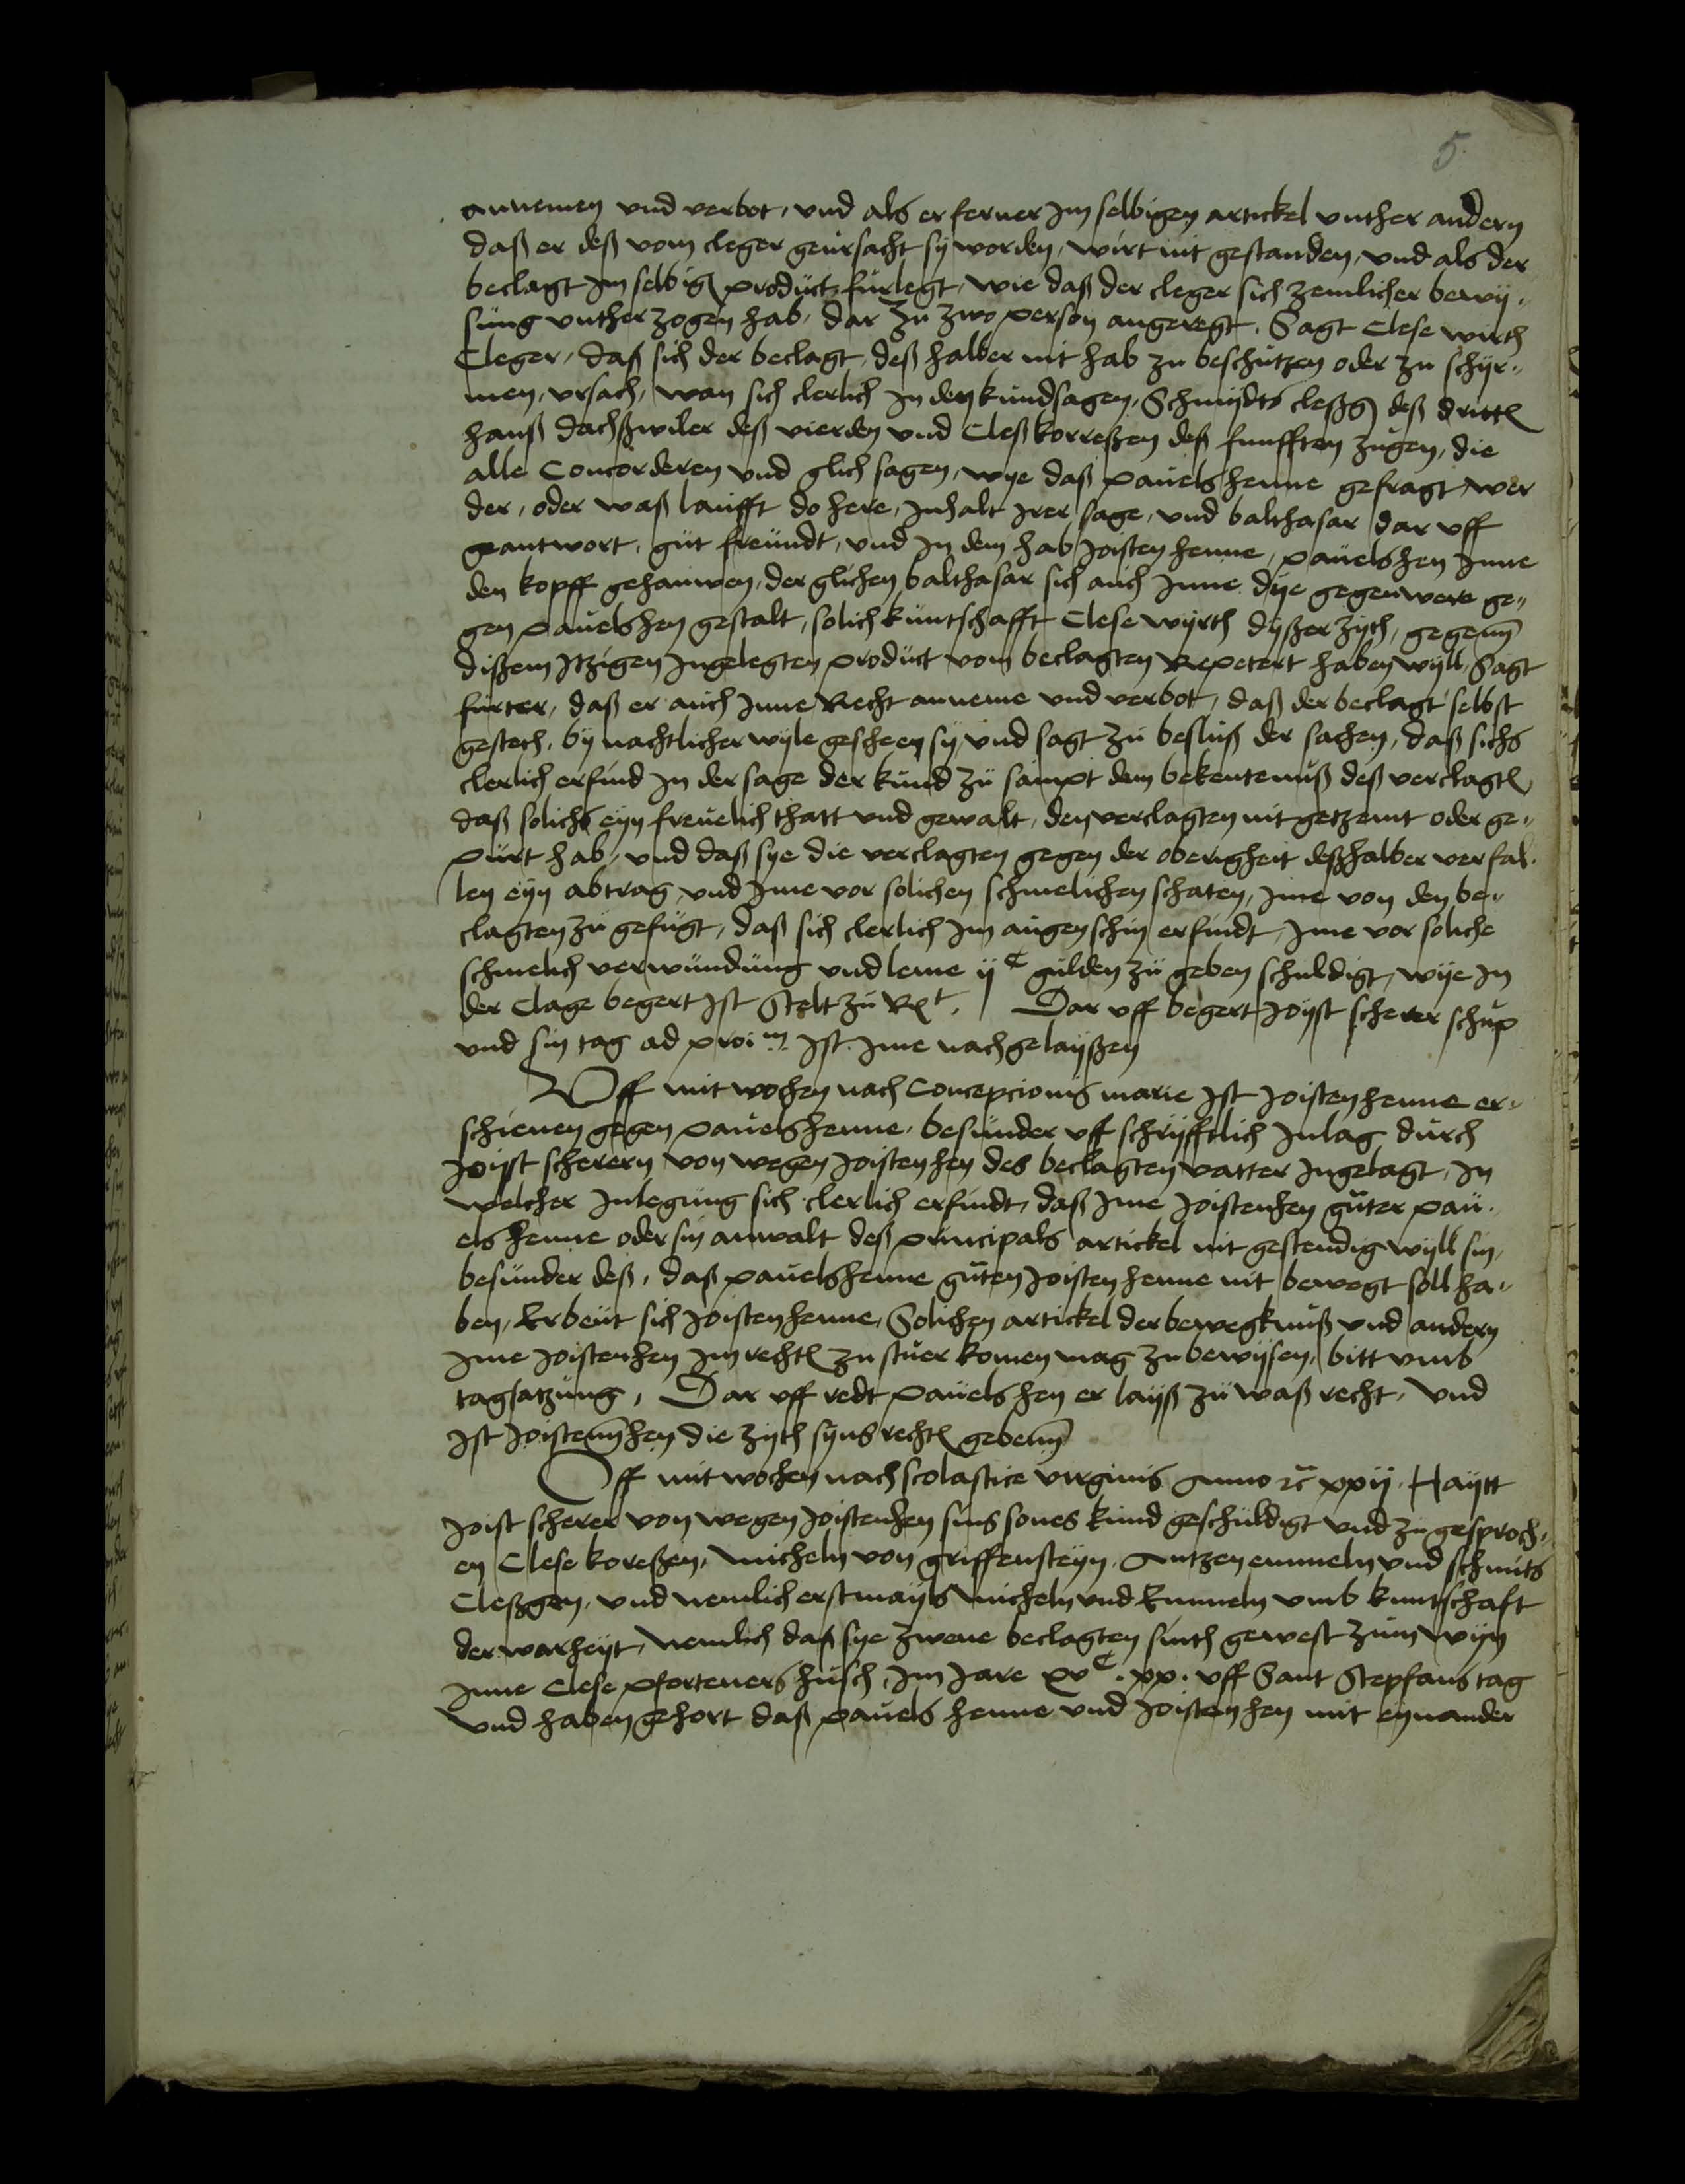 5
annemen und verbot, und als er ferner jm selbigen artickel unther andern
daß er deß vom cleger geursacht sy worden, wirt nit gestanden, und als der
beclagt jm selbigen product furlegt, wie daß der cleger sich zemlicher bewy„
sung unther zogen hab, dar zu zwo person angeregt, Sagt Clese wirth
Cleger, daß sich der beclagt, deß halber nit hab zu beschutzen oder zu schyr„
men, ursach, wan sich clerlich in den kundsagen, Schmydts cleßgen deß dritten
hanß dachßwiler deß vierden und Cleß korreßen deß funfften zugen, die
alle Concorderen und glich sagen, wye daß pauels henne gefragt wer
der, oder waß laufft do here, jnhalt jrer sage, und balthasar dar uff
geantwort, gut freundt, und jn dem hab joisten henne, pauelshen jnne
den kopff gehauwen, der glichen balthasar sich auch jnne dye gegenwere ge„
gen pauelshen gestalt, solich kuntschafft Clese wyrth dyßer zyth, gegenn
dißem jtzigen jngelegten product vom beclagten Repetert haben wyll, Sagt
furter, daß er auch jnne Recht anneme und verbot, daß der beclagt selbst
gestech, by nachtlicher wyle gescheen sy und sagt zu besluß der sachen, daß sichs
clerlich erfind jn der sage der kund zu sampt dem bekentenuß deß verclagten
daß solichs eyn frevelich thatt und gewalt, den verclagten nit getzemt oder ge„
purt hab, und daß sye die verclagten gegen der oberigheit deßhalber verfal„
len eyn abtrag, und jme vor solichen schmelichen schaten, jme von den be„
clagten zu gefugt, daß sich clerlich jm augenschin erfindt, jme vor soliche
schmelich verwundung und leme ij c gulden zu geben schuldigt, wye jn
der Clage begert jst Stelt zu Ret. Dar uff begert Joyst scherer schup
und sin tag ad proim jst jme nachgelayßen
Uff mitwochen nach Concepcionis marie jst joisten henne er„
schienen gegen pauelshenne, besunder uff schryfftlich jnlag durch
joist scherern von wegen joisten hen des beclagten vatter jngelagt, jn
welcher jnlegung sich clerlich erfindt, daß jme joistenhen guter pau„
els henne oder sin anwalt deß principals artickel nit gestendig wyll sin,
besunder deß, daß pauelshenne guten joisten henne nit bewegt soll ha„
ben, Erbeut sich joistenhenne, Solichen artickel der bewegknuß und andern
jme joistenhen jm rechten zu stuer komen mag zu bewysen, bitt umb
tagsatzung, Dar uff redt pauels hen er layß zu waß recht, und
jst joistennhen die zyth syns rechten gebenn
Uff mitwochen nach scolastice virginis Anno rc xxij Haytt
joist scherer von wegen joistenhen sins sones kund geschuldigt und zu gesproch„
en Clese koreßen, micheln von griffensteyn, Antzen emmeln und schmits
Cleßgen, und nemlich erstmayls micheln und Emmeln umb kuntschaft
der warheyt, nemlich daß sye zwene beclagten sinth gewest zum wyn
jnne Clese pfortenershusch, jm jare xv c. xx. uff Sant Stepfans tag
und haben gehort daß pauels henne und joisten hen mit eynander